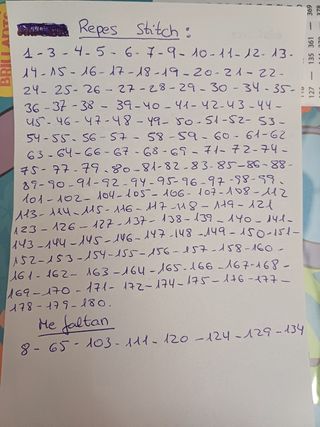 Repes Stitch:
1-3-4-5-6-7-9-10-11-12-13-
14-15-16-17-18-19-20-21-22-
24-25-26-27-28-29-30-34-35-
36-37-38-39-40-41-42-43-44-
45-46-47-48-49-50-51-52-53-
54-55-56-57-58-59-60-61-62
63-64-66-67-68-69-71-72-74-
75-77-79-80-81-82-83-85-86-88-
89-90-91-92-94-95-96-97-98-99-
101-102-104-105-106-107-108-112
113-114-115-116-117-118-119-121
123-126-127-137-138-139-140-141-
143-144-145-146-147-148-149-150-151-
152-153-154-155-156-157-158-160-
161-162-163-164-165-166-167-168-
169-170-171-172-174-175-176-177-
178-179-180.
Me faltan
8-65-103-111-120-124-129-134
BRILLANTE
135
- 369